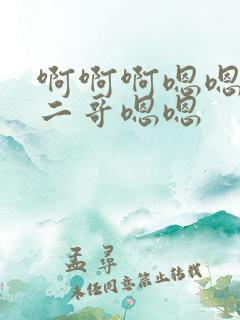 啊啊啊嗯嗯
二哥嗯嗯
孟寻
未经同意禁止转载